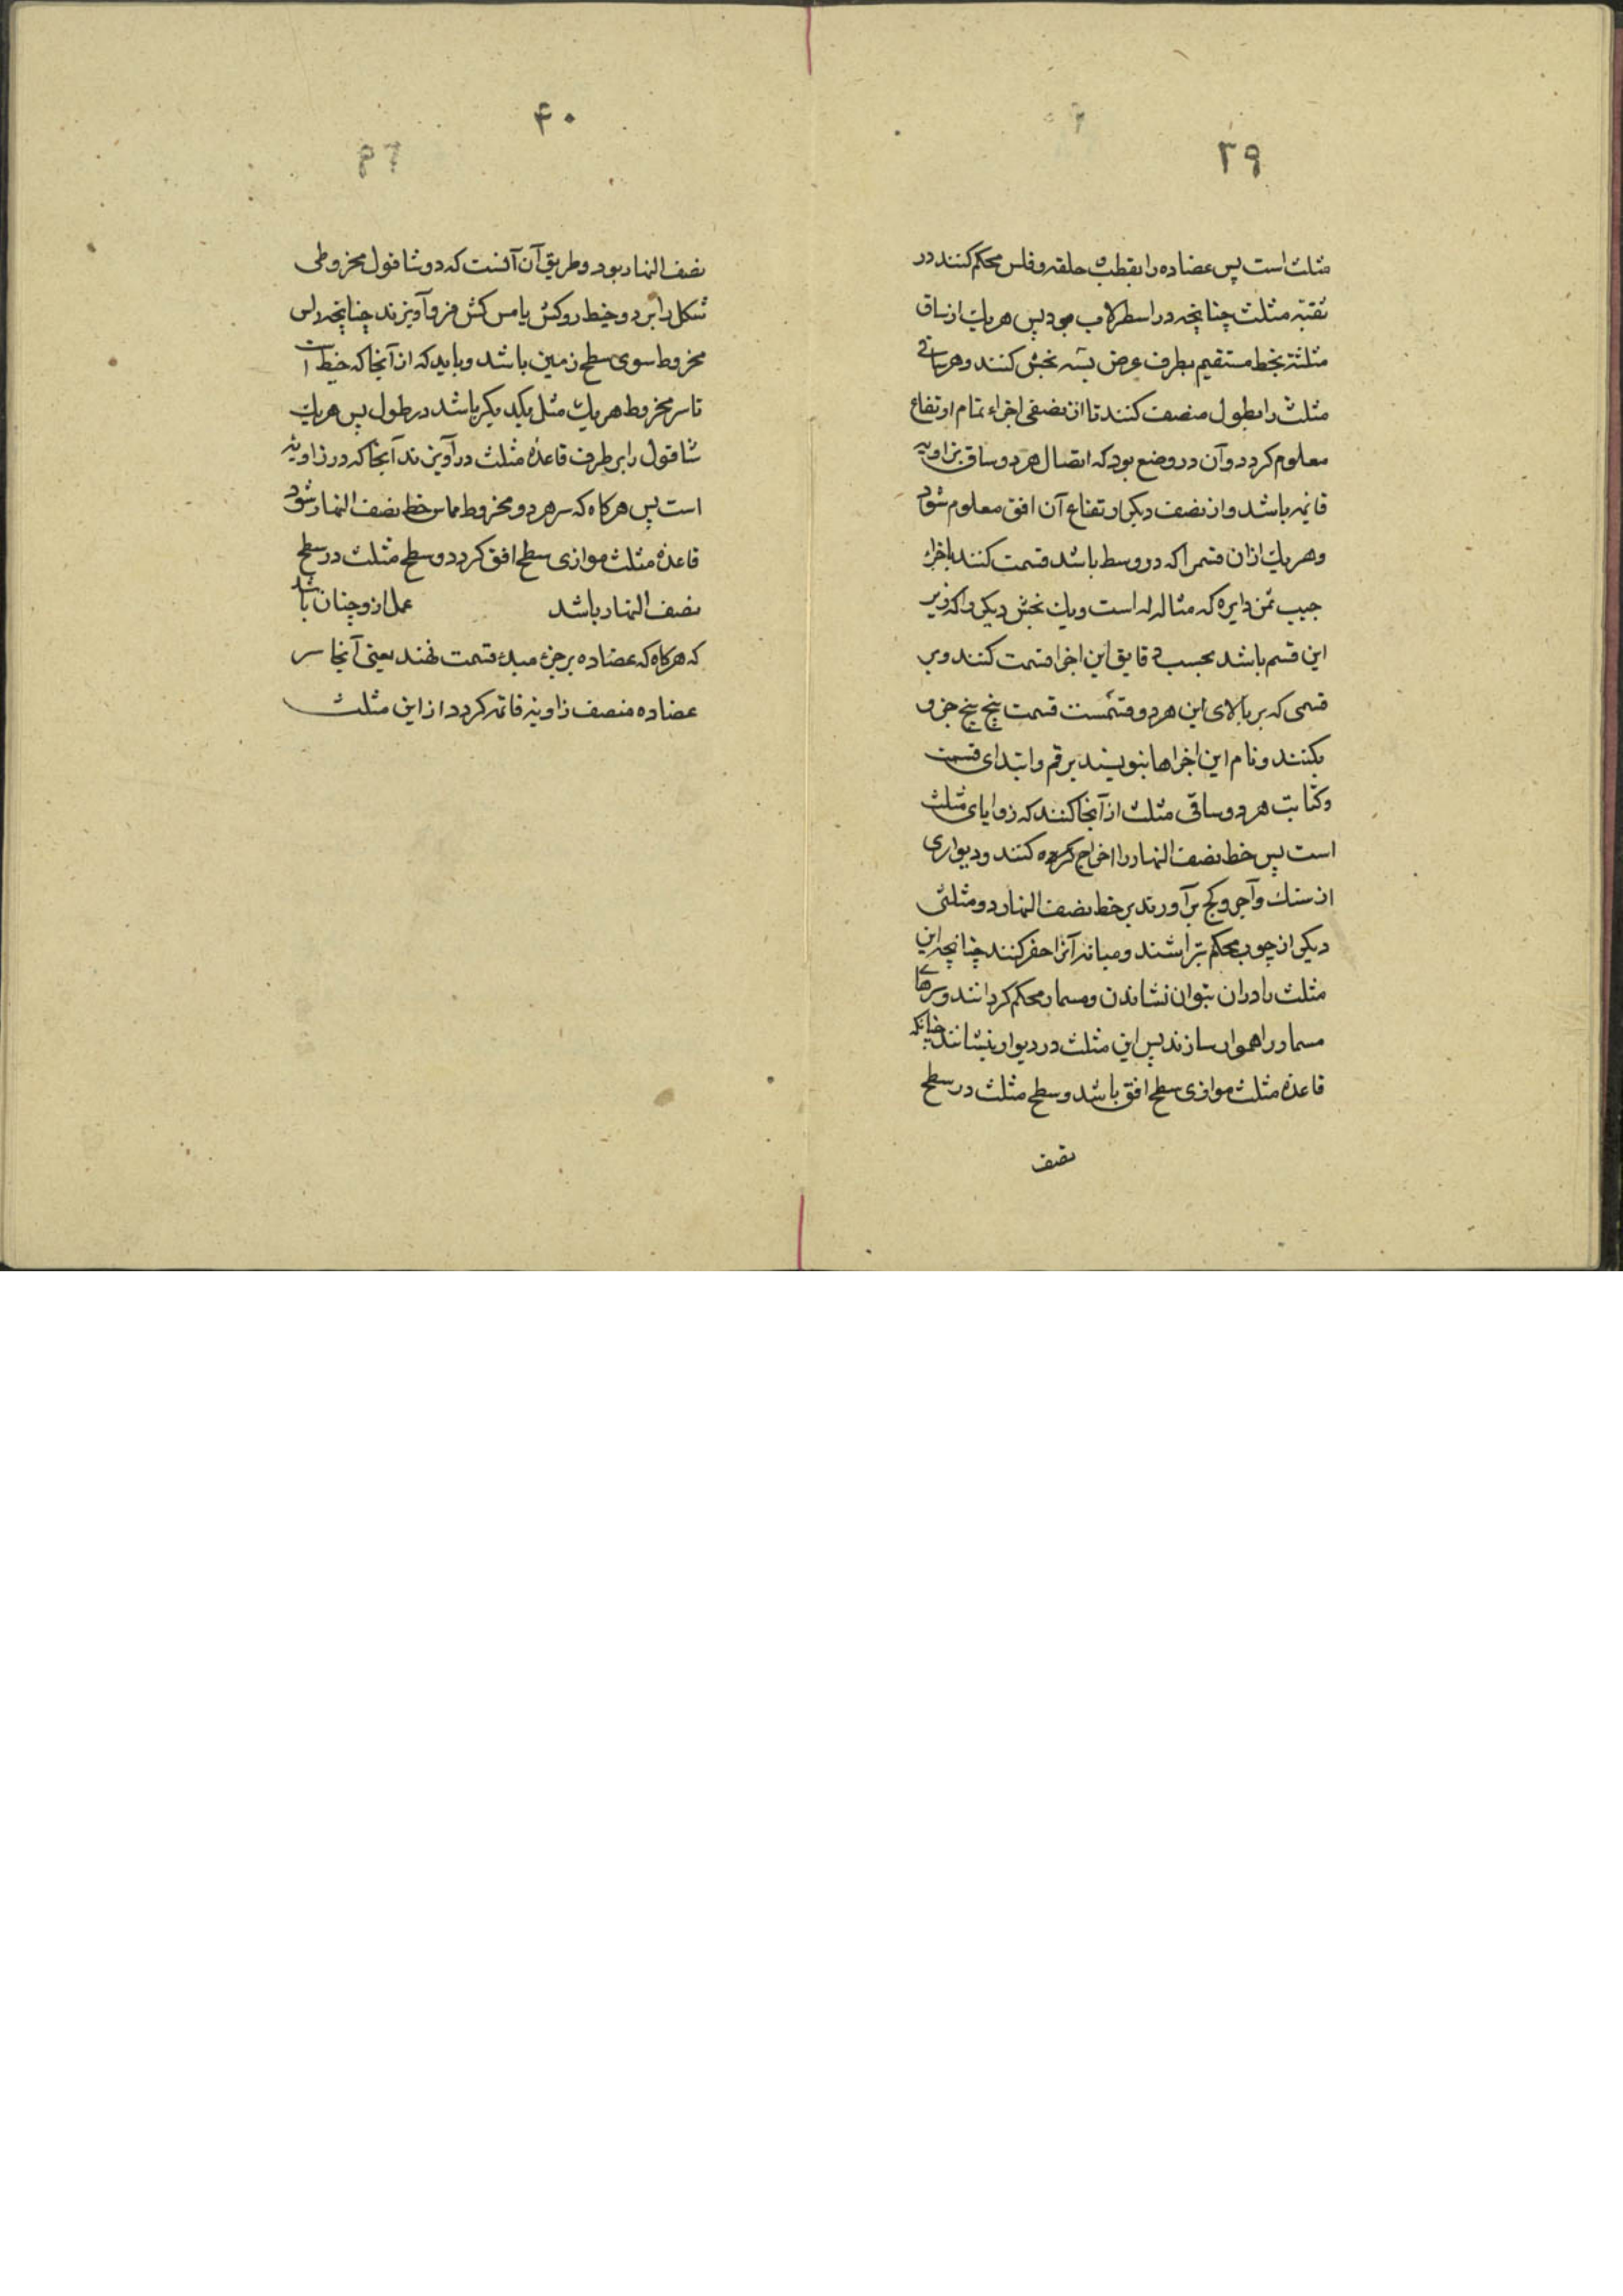 ۳۹
مثلث است پس عضاده را بقطب و حلقه و فلس محکم کنند در
ثقبهٔ مثلث چنانچه در اسطرلاب بود پس هریک از ساق
مثلثه بخط مستقیم بطرف عرض بسه بخش کنند و هر ساقی
مثلث را بطول منصف کنند تا از نصفی اجزاء تمام ارتفاع
معلوم کردد و آن در وضع بود که اتصال هر دو ساق بزاویه
قایمه باشد و از نصف دیکر ارتفاع آن افق معلوم شود
و هریک ازان قسمرا که در وسط باشد قسمت کنند باجزاء
جیب ثمن دایره که مثاله له است و یک بخش دیکر را که زیر
این قسم باشد بحسب دقایق این اجزا قسمت کنند و بر
قسمی که بر بالای این هر دو قسمست قسمت پنج پنج جزو
بکنند و نام این اجزاها بنویسند برقم و ابتدای قسمت
و کتابت هر دو ساقی مثلث از آنجا کنند که زوایای مثلث
است پس خط نصف النهار را اخراج کرده کنند و دیواری
از سنک و آجر و کج برآورند بر خط نصف النهار و مثلثی
دیکر از چوب محکم بتراشند و میانه آنرا حفر کنند چنانچه این
مثلث را دران بتوان نشاندن و مسمار محکم کردانند و سرهای
مسمار را هموار سازند پس این مثلث در دیوار بنشانند چنانکه
قاعدهٔ مثلث موازی سطح افق باشد و سطح مثلث در سطح
نصف
۴۰
نصف النهار بود و طریق آن آنست که دو شاقول مخروطی
شکل را بر دو خیط رو کش یا مس کش فرو آویزند چنانچه راس
مخروط سوی سطح زمین باشد و باید که از آنجا که خیط است
تا سر مخروط هریک مثل یکدیکر باشد در طول پس هریک
شاقول را بر طرف قاعدهٔ مثلث در آویزند آنجا که در زاویه
است پس هرکاه که سر هر دو مخروط مماس خط نصف النهار شود
قاعدهٔ مثلث موازی سطح افق کردد و سطح مثلث در سطح
نصف النهار باشد عمل ازو چنان باشد
که هرکاه که عضاده بر جزء مبدء قسمت نهند یعنی آنجا سر
عضاده منصف زاویهٔ قائمه کردد از این مثلث